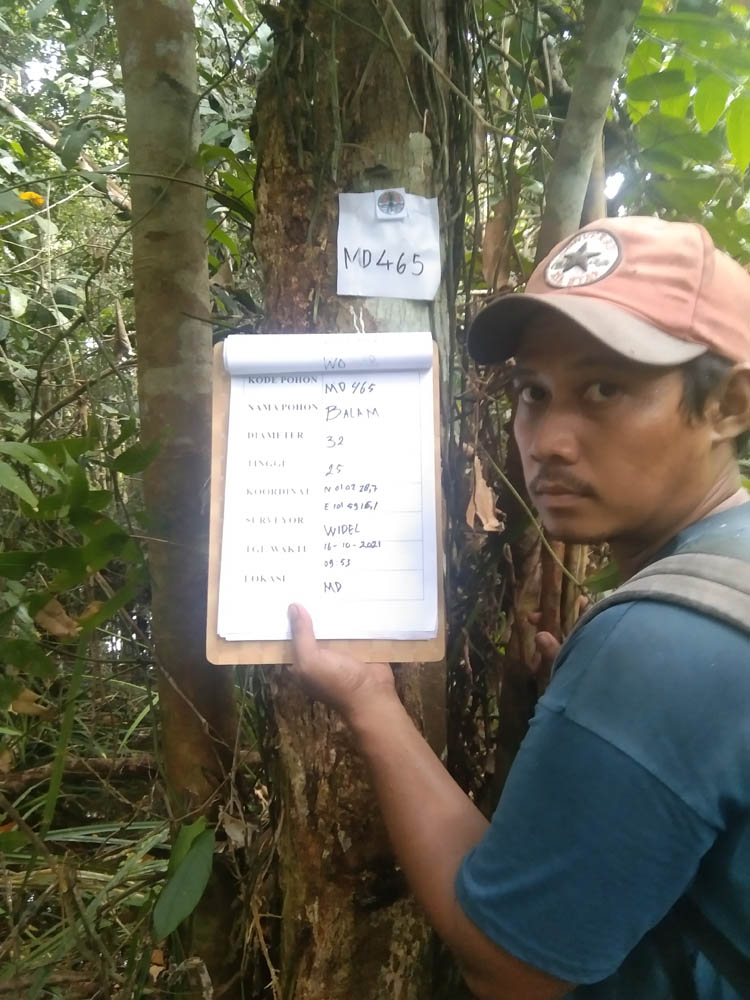 MD465
KODE POHON MD 465
NAMA POHON BALAM
DIAMETER 32
TINGGI 25
KOORDINAT N 01 02
E 101
SURVEYOR WIDEL
TGL WAKTU 16-10-2021
09.53
LOKASI MD